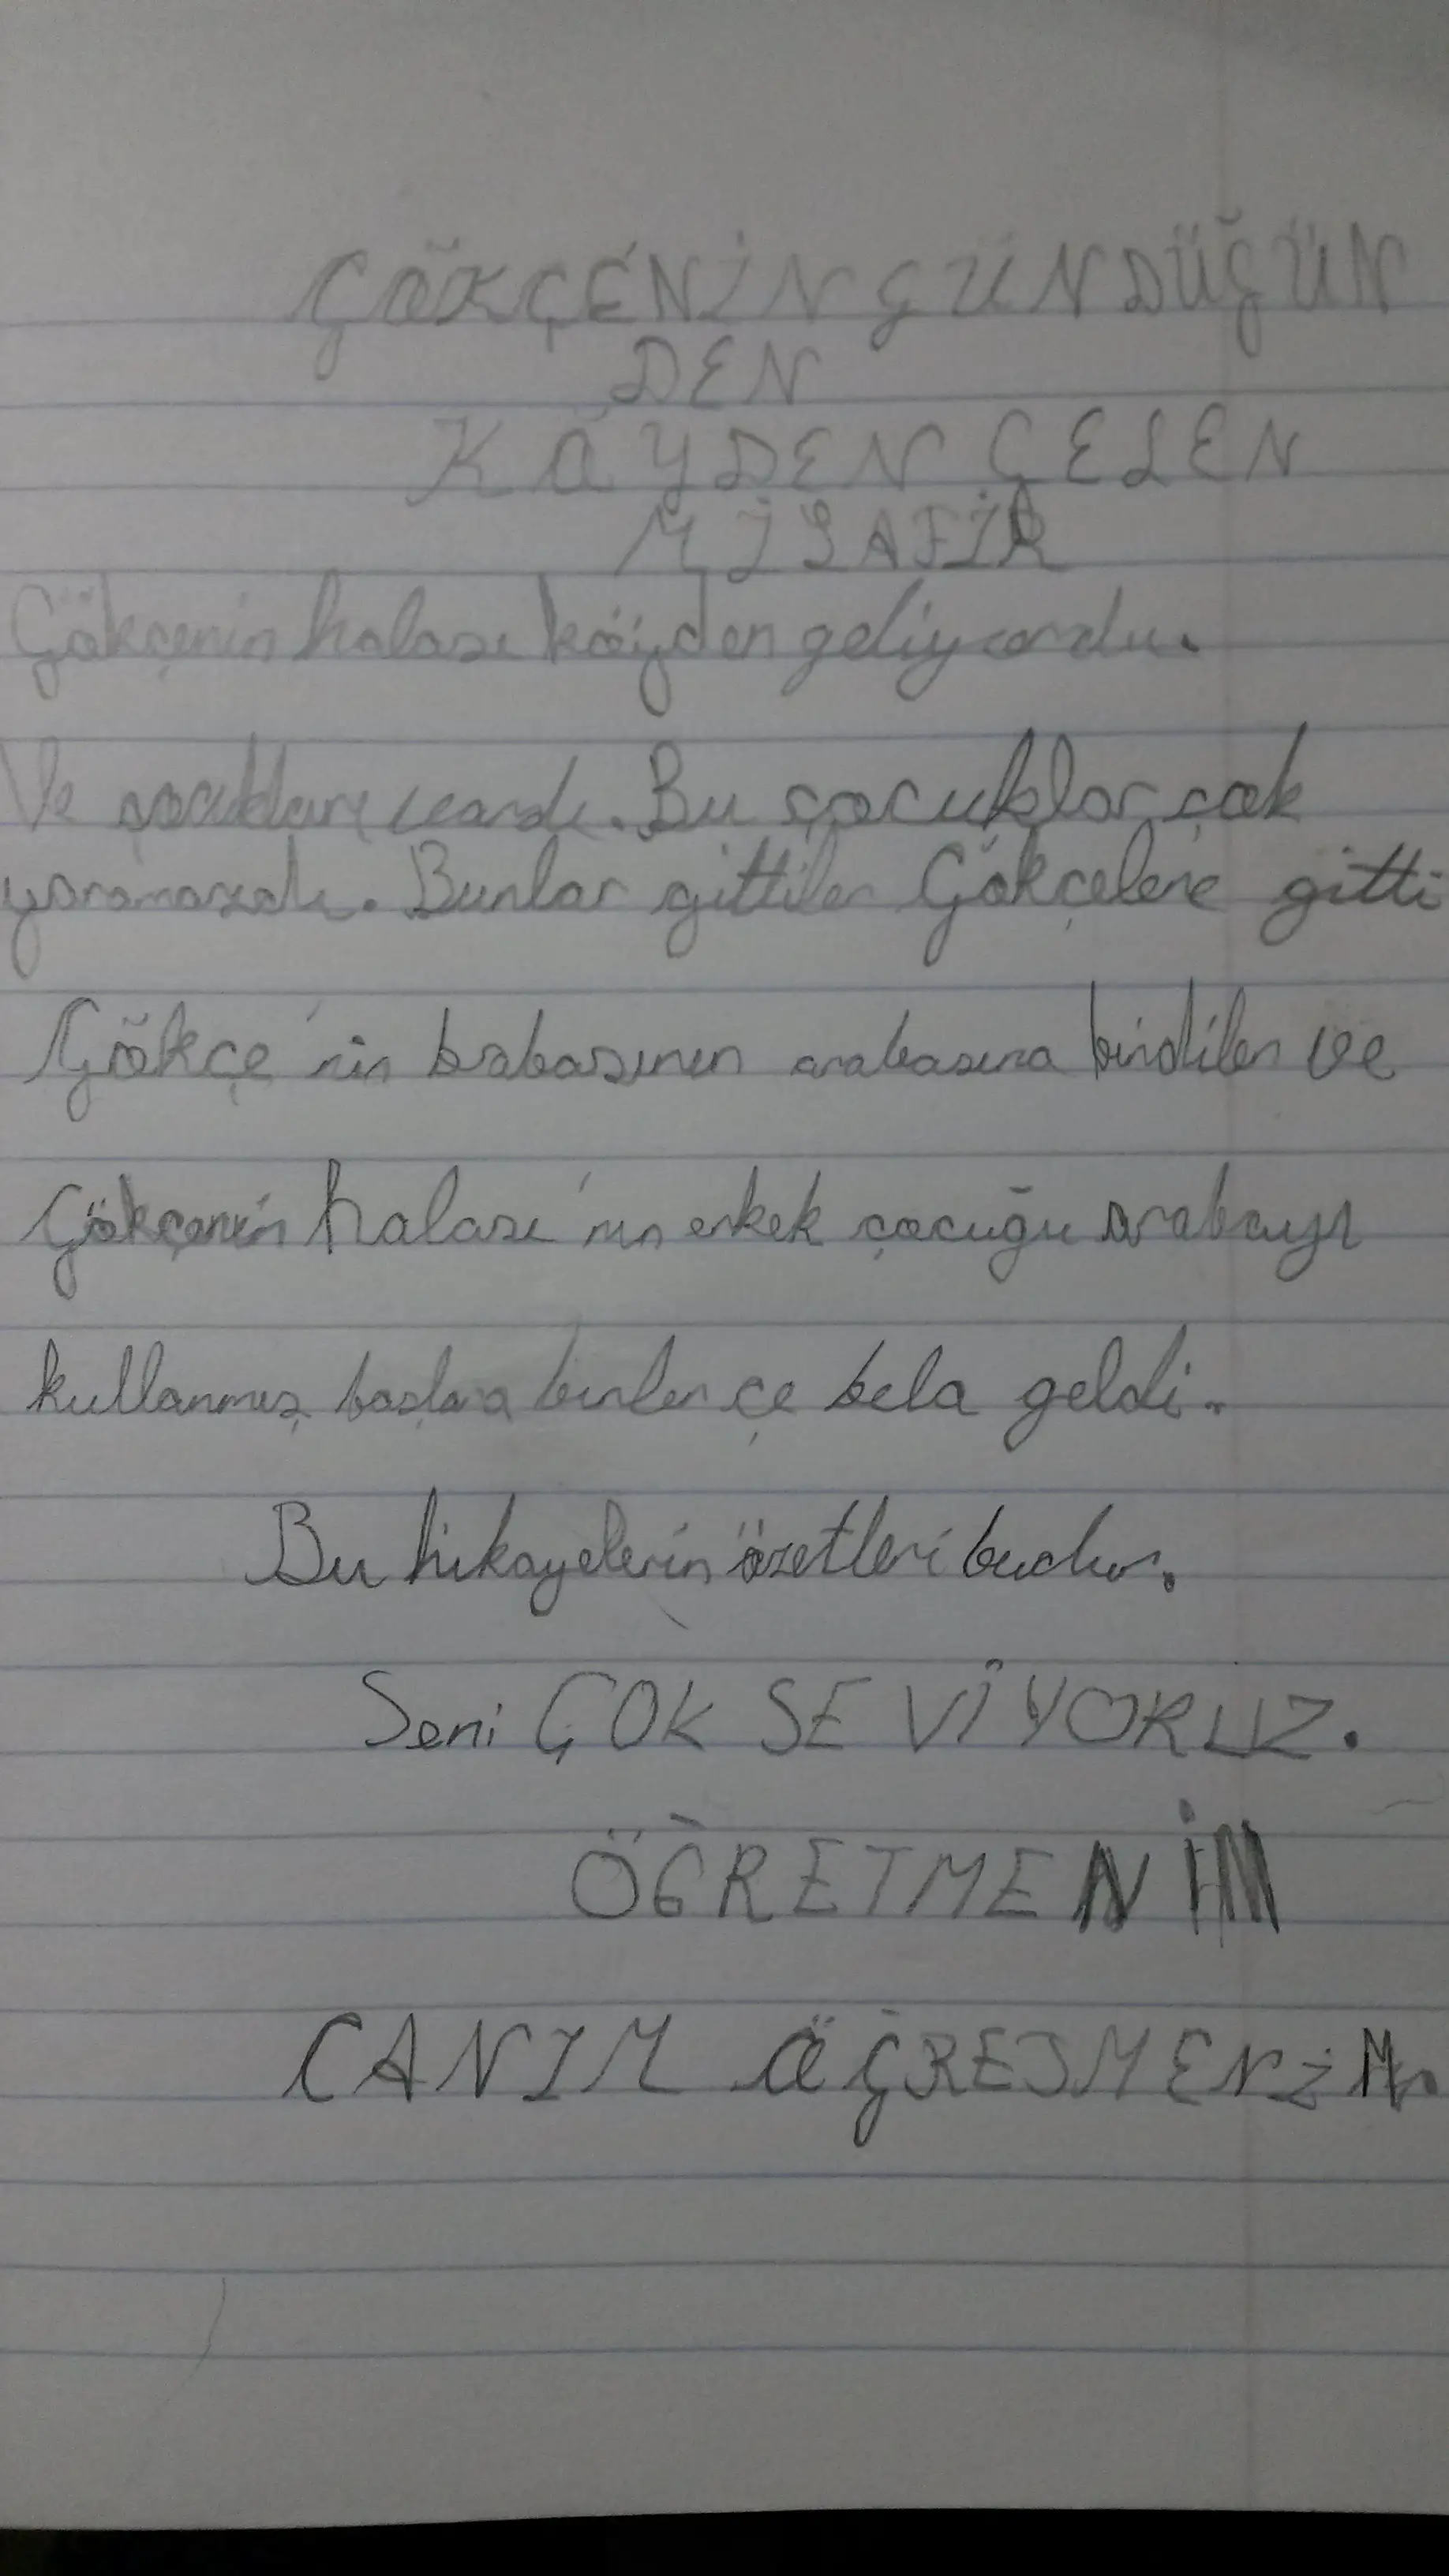 GÖKÇENİN GÜNDÜĞÜN
DEN
KÖYDEN GELEN
MİSAFİR
Gökçenin halası köyden geliyordu.
Ve çocukları vardı. Bu çocuklar çok
yaramazdı. Bunlar gittiler Gökçelere gitti
Gökçe'nin babasının arabasına bindiler ve
Gökçenin halası'nın erkek çocuğu arabayı
kullanmış başlara binlerçe bela geldi.
Bu hikayelerin özetleri budur.
Seni ÇOK SEVİYORUZ.
ÖĞRETMENİM
CANIM ÖĞRETMENİM.